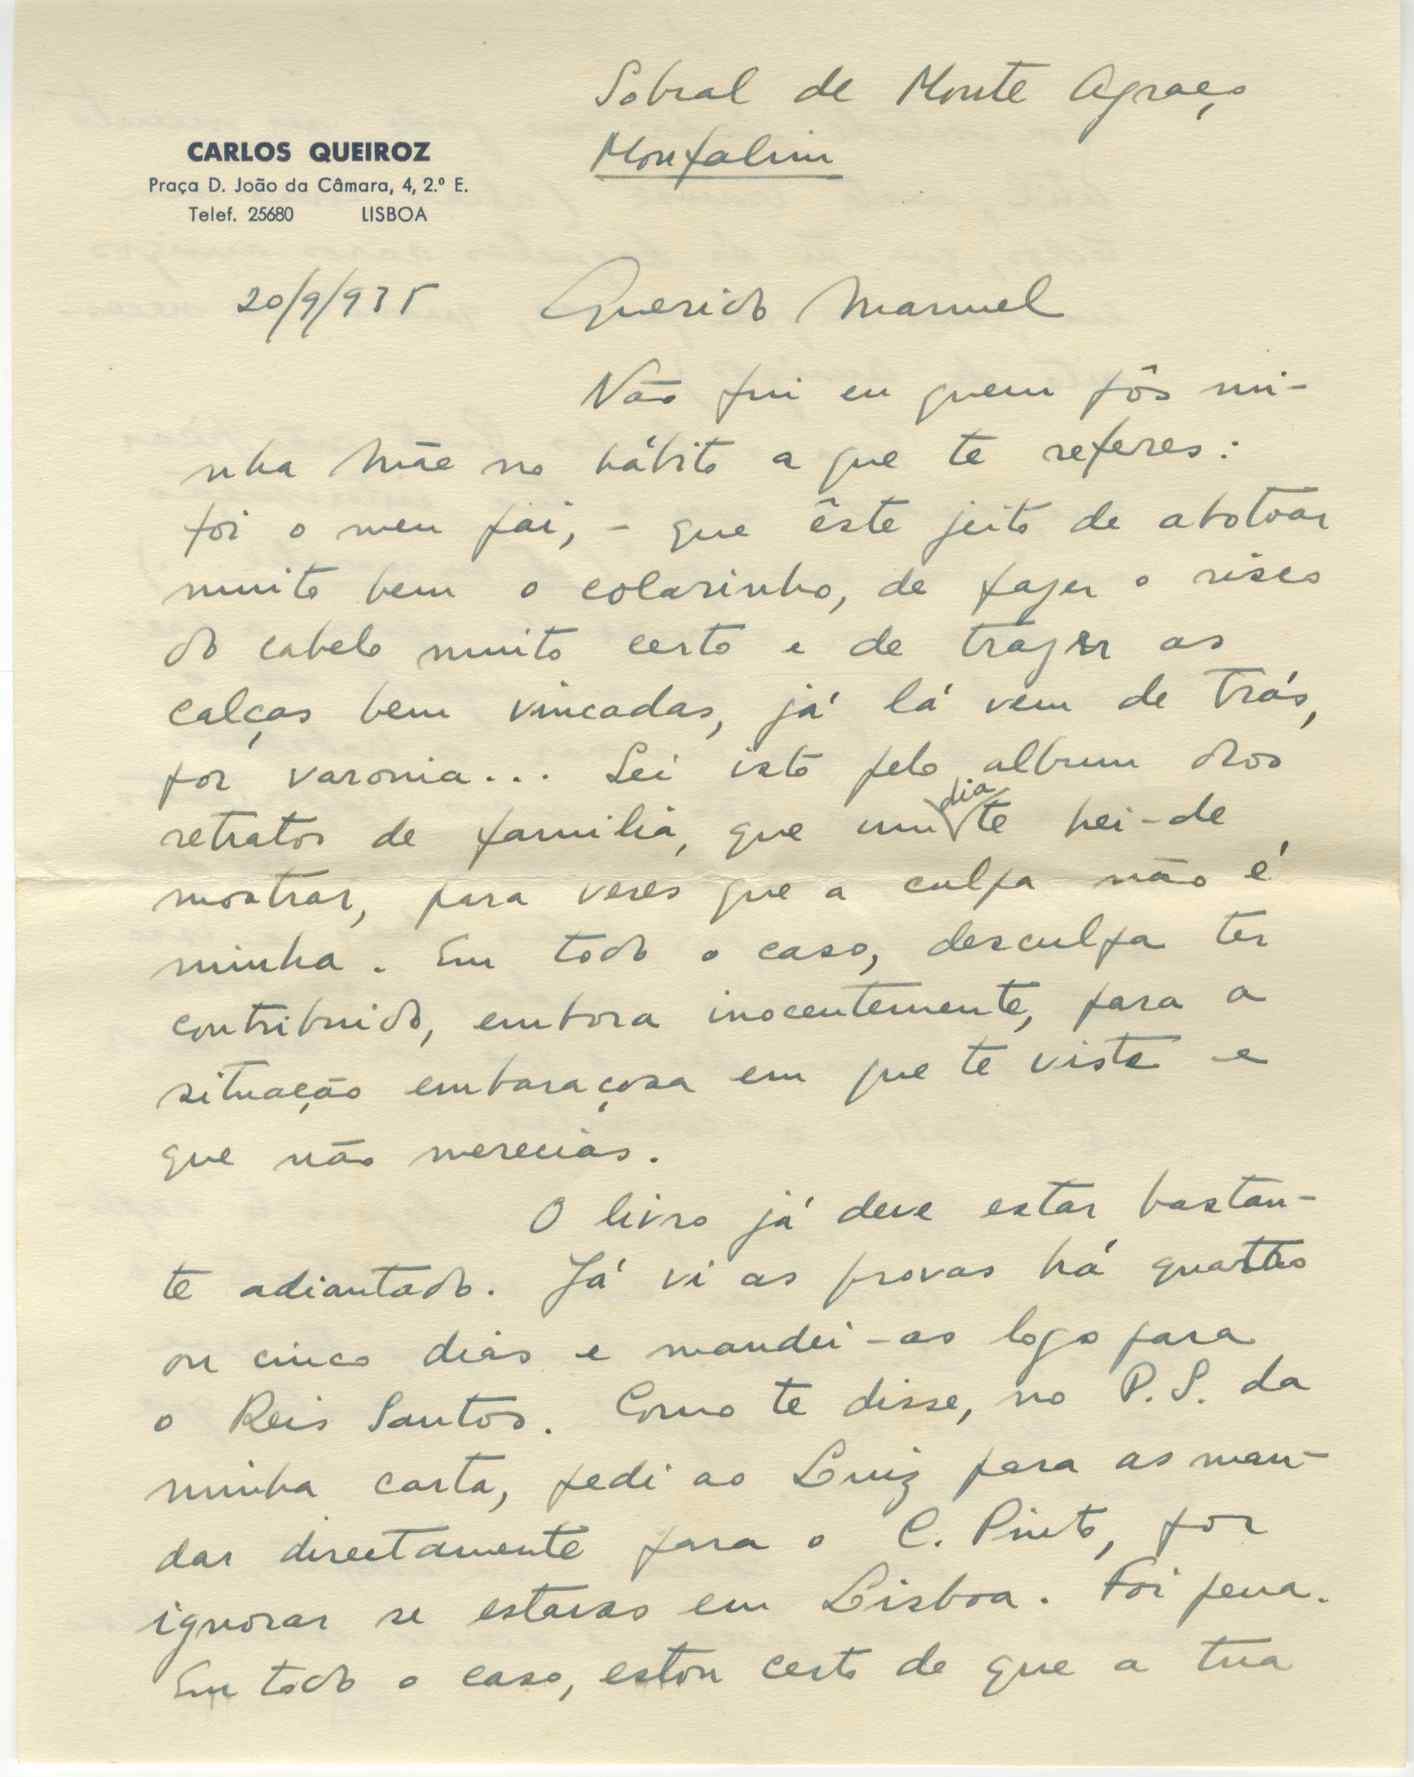 Sobral de Monte Agraço
Monfalim
CARLOS QUEIROZ
Praça D. João da Câmara, 4, 2.º E.
Telef. 25680 LISBOA
20/9/935 Querido Manuel
Não fui eu quem pôs mi-
nha Mãe no hábito a que te referes:
foi o meu pai, - que êste jeito de abotoar
muito bem o colarinho, de fazer o risco
do cabelo muito certo e de trazer as
calças bem vincadas, já lá vem de trás,
por varonia... Sei isto pelo album dos
retratos de familia, que um dia te hei-de
mostrar, para veres que a culpa não é
minha. Em todo o caso, desculpa ter
contribuido, embora inocentemente, para a
situação embaraçosa em que te viste e
que não merecias.
O livro já deve estar bastan-
te adiantado. Já vi as provas há quatro
ou cinco dias e mandei-as logo para
o Reis Santos. Como te disse, no P.S. da
minha carta, pedi ao Luiz para as man-
dar directamente para o C. Pinto, por
ignorar se estavas em Lisboa. Foi pena.
Em todo o caso, estou certo de que a tua